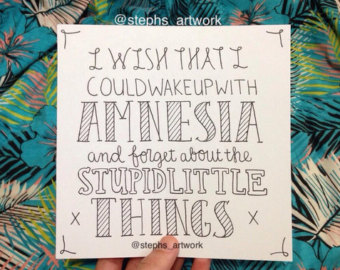 @stephs_artwork
I WISH THAT I
COULD WAKE UP WITH
AMNESIA
and forget about the
STUPID LITTLE
X THINGS X
@stephs_artwork